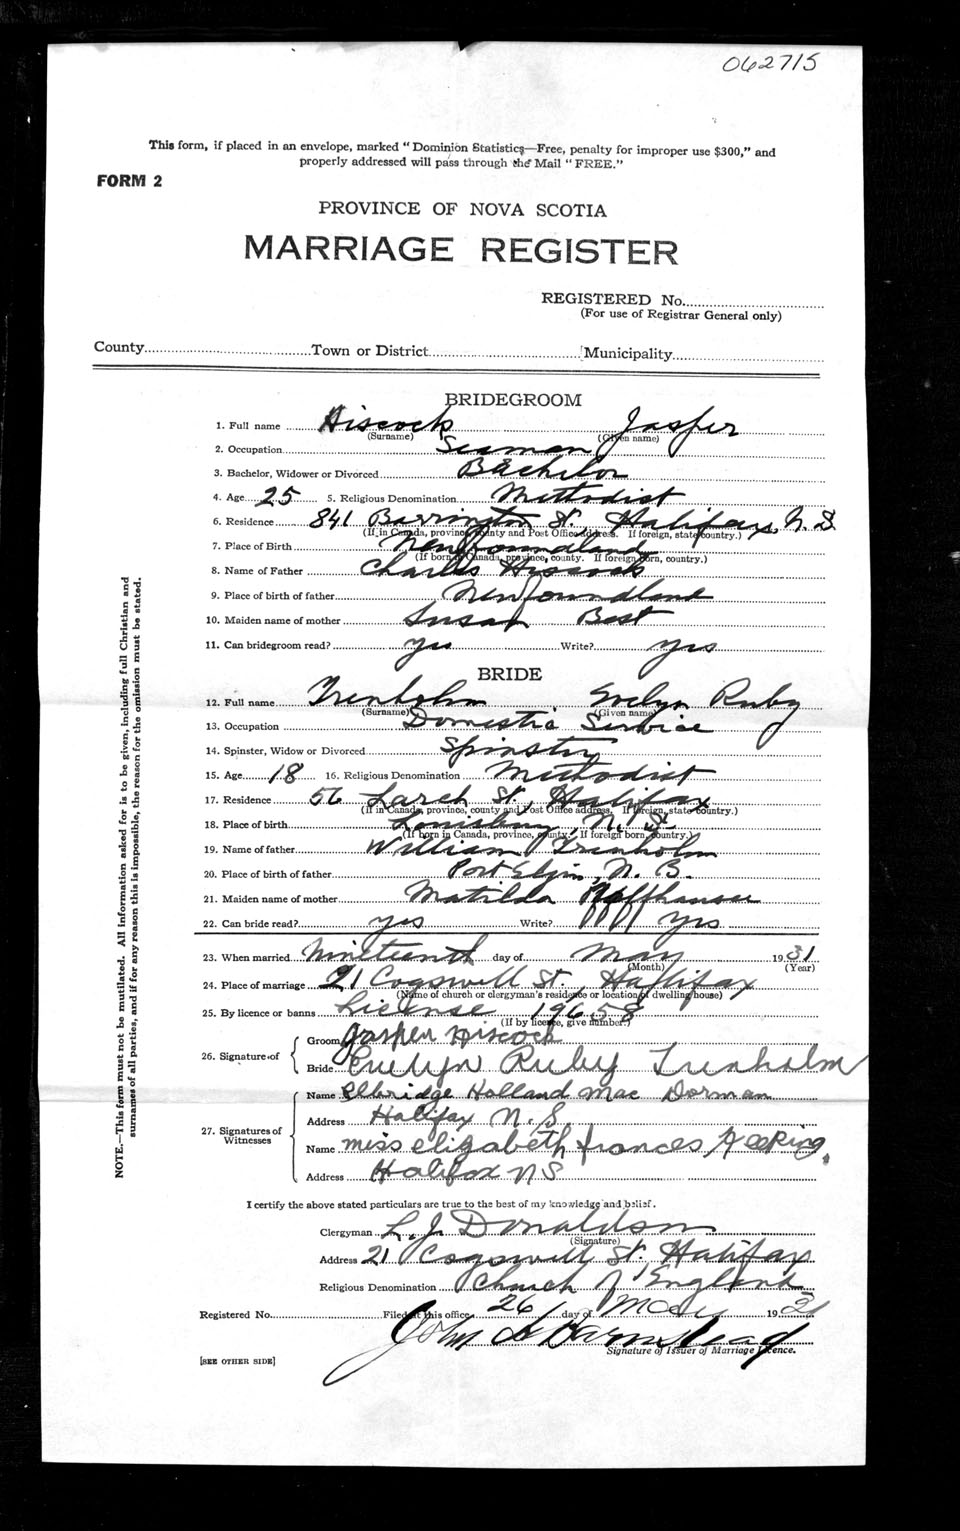 062715
This form, if placed in an envelope, marked "Dominion Statistics—Free, penalty for improper use $300," and
properly addressed will pass through the Mail "FREE."
FORM 2
PROVINCE OF NOVA SCOTIA
MARRIAGE REGISTER
REGISTERED No.
(For use of Registrar General only)
County Town or District Municipality
BRIDEGROOM
1. Full name Hiscock Jasper
(Surname) (Given name)
2. Occupation Seaman
3. Bachelor, Widower or Divorced Bachelor
4. Age 25 5. Religious Denomination Methodist
6. Residence 841 Barrington St. Halifax, N.S.
(If in Canada, province, county and Post Office address. If foreign, state country.)
7. Place of Birth Newfoundland
(If born in Canada, province, county. If foreign born, country.)
8. Name of Father Charles Hiscock
9. Place of birth of father Newfoundland
10. Maiden name of mother Susan Best
11. Can bridegroom read? Yes Write? Yes
BRIDE
12. Full name Trenholm Evelyn Ruby
(Surname) (Given name)
13. Occupation Domestic Service
14. Spinster, Widow or Divorced Spinster
15. Age 18 16. Religious Denomination Methodist
17. Residence 56 Larch St., Halifax
(If in Canada, province, county and Post Office address. If foreign, state country.)
18. Place of birth Louisburg, N.S.
(If born in Canada, province, county. If foreign born, country.)
19. Name of father William Trenholm
20. Place of birth of father Port Elgin, N.B.
21. Maiden name of mother Matilda
22. Can bride read? yes Write? yes
23. When married Nineteenth day of May 1931
(Month) (Year)
24. Place of marriage 21 Cogswell St., Halifax
(Name of church or clergyman's residence or location of dwelling house)
25. By licence or banns License 19658
(If by licence, give number.)
26. Signature of
Groom Jasper Hiscock
Bride Evelyn Ruby Trenholm
27. Signatures of Witnesses
Name Elbridge Holland Mac Dorman
Address Halifax N.S
Name Miss Elizabeth Frances Keeping.
Address Halifax NS
I certify the above stated particulars are true to the best of my knowledge and belief.
Clergyman L. J. Donaldson
(Signature)
Address 21 Cogswell St. Halifax
Religious Denomination Church of England
Registered No. Filed at this office 26 day of May 1931
John A Barnstead
Signature of Issuer of Marriage Licence.
[SEE OTHER SIDE]
NOTE.—This form must not be mutilated. All information asked for is to be given, including full Christian and
surnames of all parties, and if for any reason this is impossible, the reason for the omission must be stated.